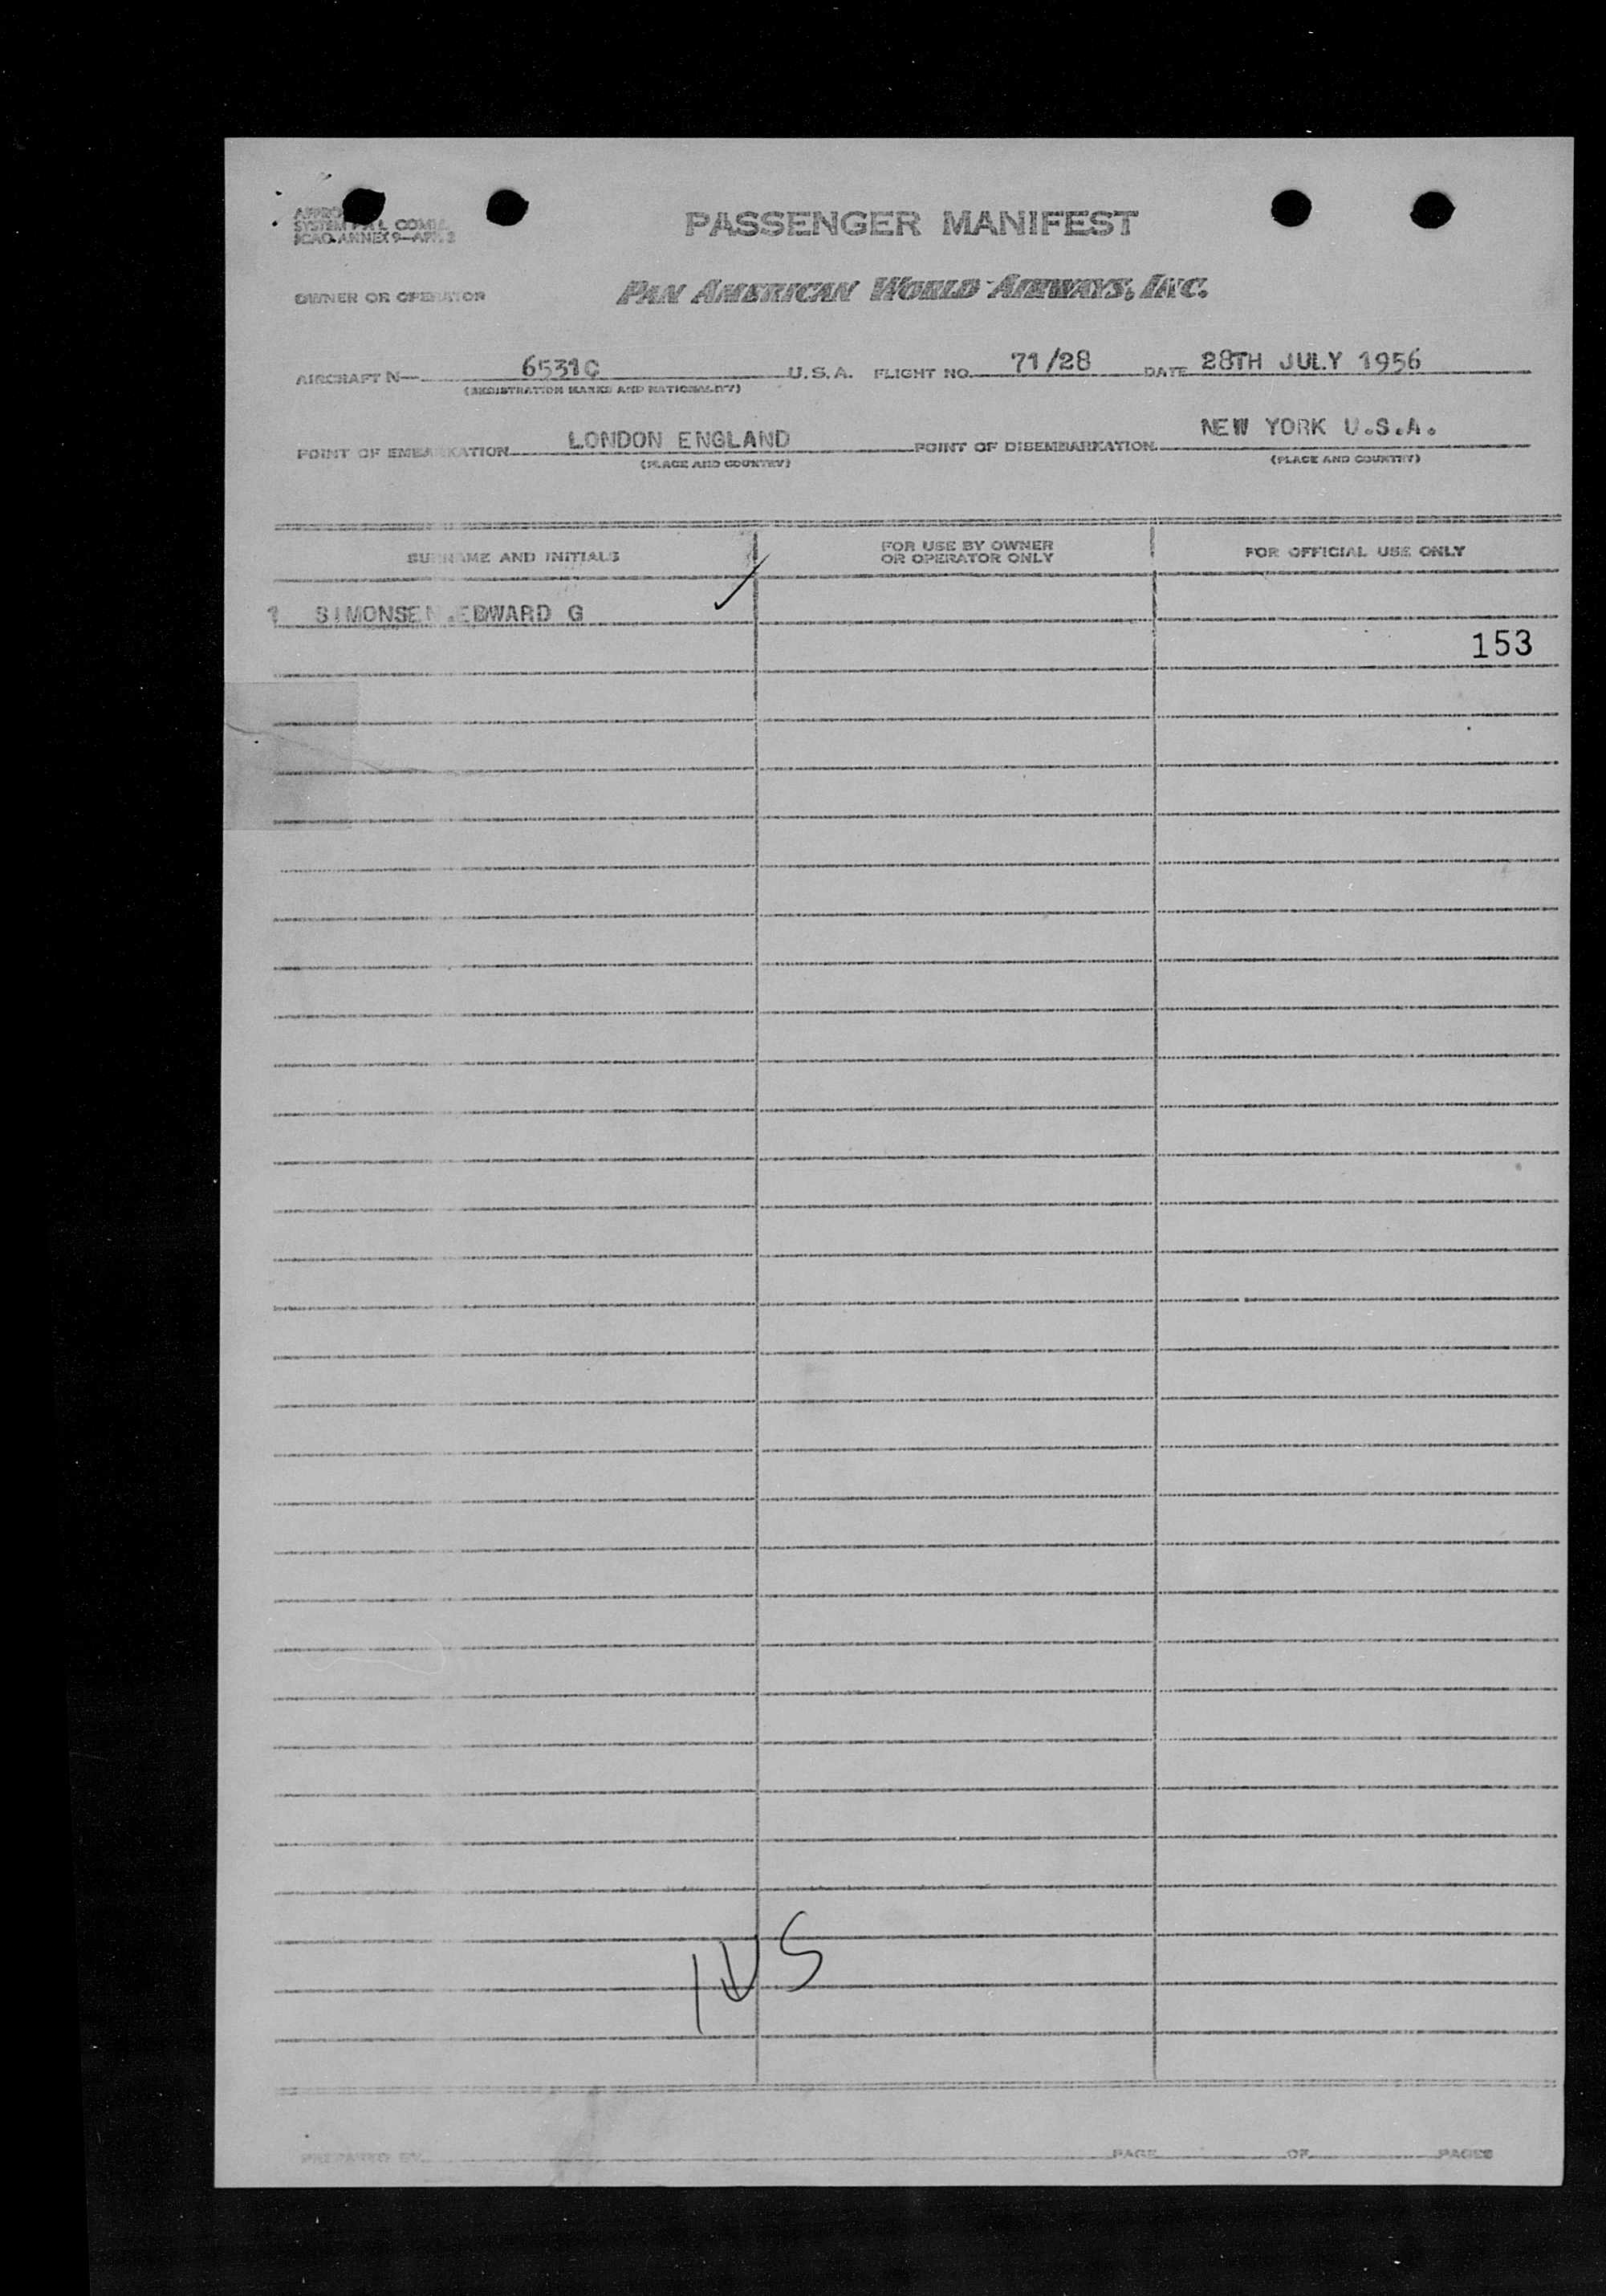 SYSTEM
ICAO ANNEX 9—APP. 3
PASSENGER MANIFEST
OWNER OR OPERATOR PAN AMERICAN WORLD AIRWAYS, INC.
AIRCRAFT N— 6531C U.S.A. FLIGHT NO. 71/28 DATE 28TH JULY 1956
(REGISTRATION MARKS AND NATIONALITY)
POINT OF EMBARKATION LONDON ENGLAND POINT OF DISEMBARKATION NEW YORK U.S.A.
(PLACE AND COUNTRY) (PLACE AND COUNTRY)
SURNAME AND INITIALS FOR USE BY OWNER OR OPERATOR ONLY FOR OFFICIAL USE ONLY
1 SIMONSEN.EDWARD G
153
PREPARED BY PAGE OF PAGES